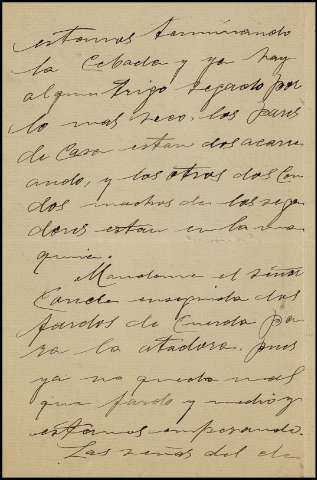 estamos terminando
la Cebada y ya hay
algun trigo segado por
lo mas seco. los pares
de Casa estan dos acarre
ando, y los otros dos Con
dos machos de los sega
dores estan en la ma
quina.
Mandame el señor
Conde enseguida dos
fardos de Cuerda pa
ra la atadora. pues
ya no queda mas
que fardo y medio y
estamos empezando.
Las señas del de